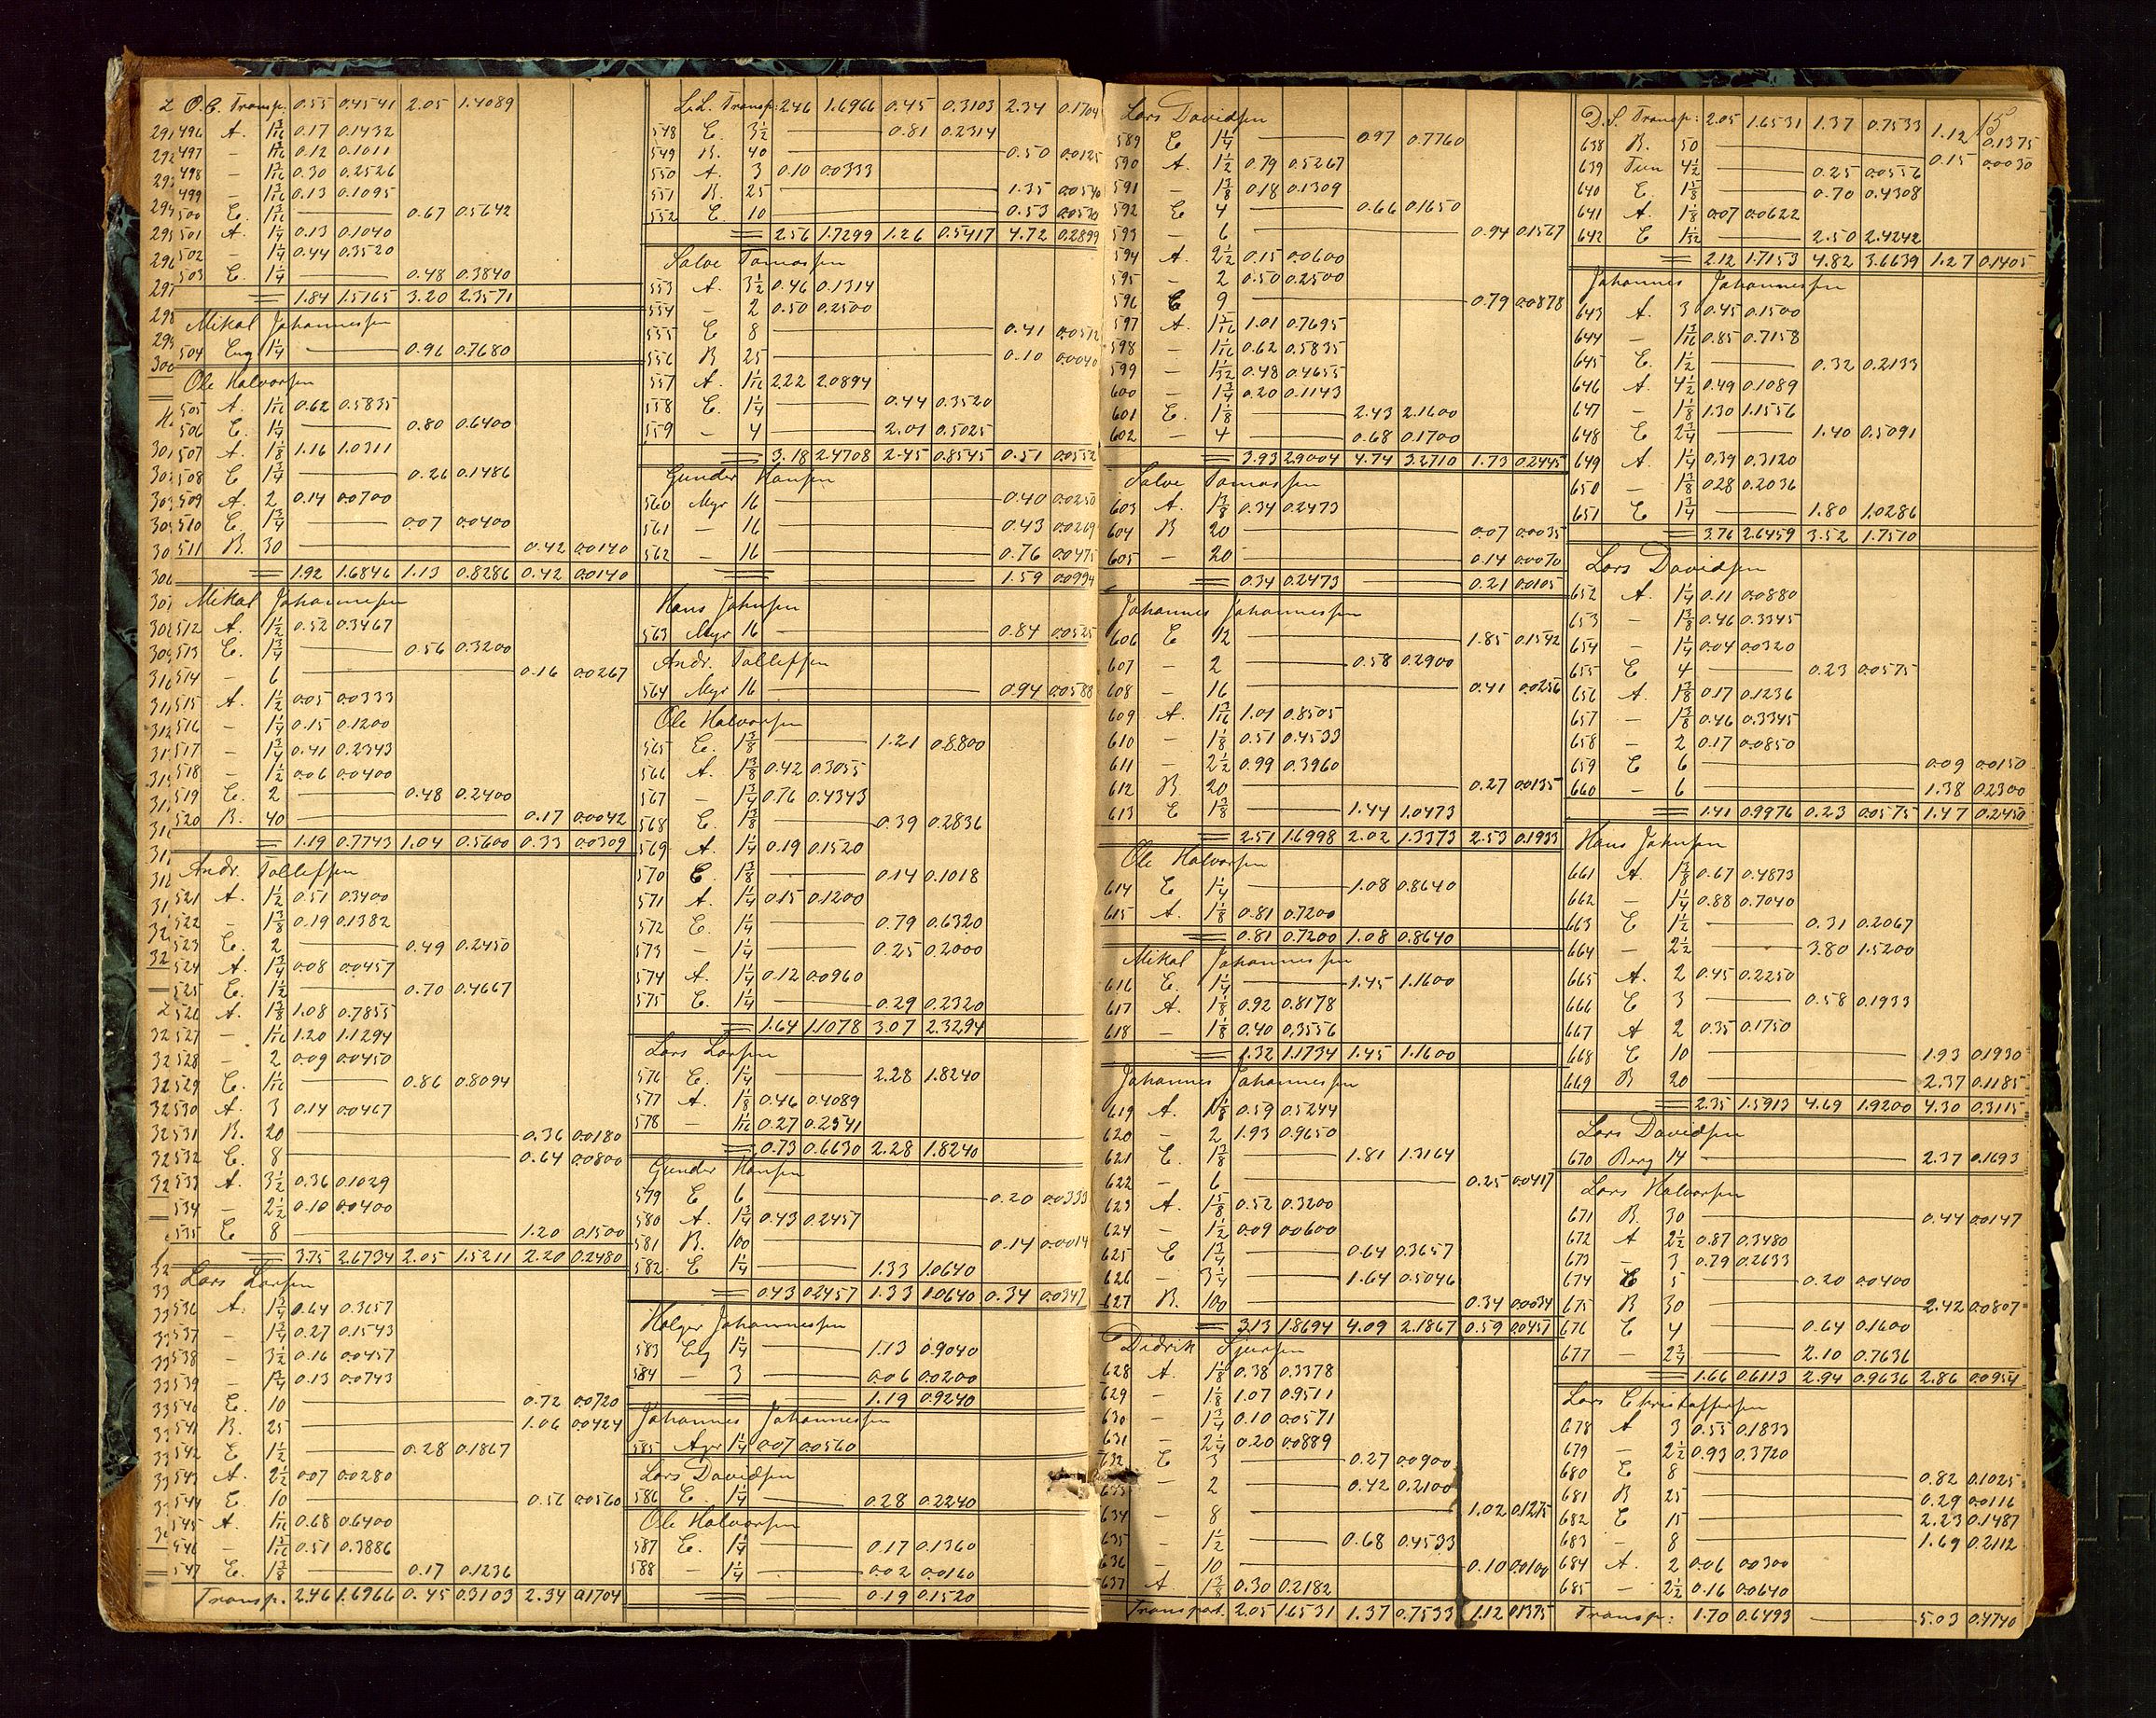 O.C. Transp. 0.55 0.4541 2.05 1.4089
496 A. 1 3/16 0.17 0.1432
497 - 1 3/16 0.12 0.1011
498 - 1 3/16 0.30 0.2526
499 - 1 3/16 0.13 0.1095
500 E. 1 3/16 0.67 0.5642
501 A. 1 1/4 0.13 0.1040
502 - 1 1/4 0.44 0.3520
503 E. 1 1/4 0.48 0.3840
= 1.84 1.5165 3.20 2.3571
Mikal Johannessen
504 Eng 1 1/4 0.96 0.7680
Ole Halvorsen
505 A. 1 1/16 0.62 0.5835
506 E. 1 1/4 0.80 0.6400
507 A. 1 1/8 1.16 1.0311
508 E 1 3/4 0.26 0.1486
509 A. 2 0.14 0.0700
510 E. 1 3/4 0.07 0.0400
511 B. 30 0.42 0.0140
= 1.92 1.6846 1.13 0.8286 0.42 0.0140
Mikal Johannessen
512 A. 1 1/2 0.52 0.3467
513 E. 1 3/4 0.56 0.3200
514 - 6 0.16 0.0267
515 A. 1 1/2 0.05 0.0333
516 - 1 1/4 0.15 0.1200
517 - 1 3/4 0.41 0.2343
518 - 1 1/2 0.06 0.0400
519 E. 2 0.48 0.2400
520 B. 40 0.17 0.0042
= 1.19 0.7743 1.04 0.5600 0.33 0.0309
Andr. Tollefsen
521 A. 1 1/2 0.51 0.3400
522 - 1 3/8 0.19 0.1382
523 E. 2 0.49 0.2450
524 A. 1 3/4 0.08 0.0457
525 E. 1 1/2 0.70 0.4667
526 A. 1 3/8 1.08 0.7855
527 - 1 1/16 1.20 1.1294
528 - 2 0.09 0.0450
529 E. 1 1/16 0.86 0.8094
530 A. 3 0.14 0.0467
531 B. 20 0.36 0.0180
532 E. 8 0.64 0.0800
533 A. 3 1/2 0.36 0.1029
534 - 2 1/2 0.10 0.0400
535 E 8 1.20 0.1500
= 3.75 2.6734 2.05 1.5211 2.20 0.2480
Lars Larsen
536 A. 1 3/4 0.64 0.3657
537 - 1 3/4 0.27 0.1543
538 - 3 1/2 0.16 0.0457
539 - 1 3/4 0.13 0.0743
540 E. 10 0.72 0.0720
541 B. 25 1.06 0.0424
542 E 1 1/2 0.28 0.1867
543 A. 2 1/2 0.07 0.0280
544 E. 10 0.56 0.0560
545 A. 1 1/16 0.68 0.6400
546 - 1 5/16 0.51 0.3886
547 E. 1 3/8 0.17 0.1236
Transp. 2.46 1.6966 0.45 0.3103 2.34 0.1704
L.L. Transp: 2.46 1.6966 0.45 0.3103 2.34 0.1704
548 E. 3 1/2 0.81 0.2314
549 B. 40 0.50 0.0125
550 A. 3 0.10 0.0333
551 B. 25 1.35 0.0540
552 E. 10 0.53 0.0530
= 2.56 1.7299 1.26 0.5417 4.72 0.2899
Salve Tomassen
553 A. 3 1/2 0.46 0.1314
554 - 2 0.50 0.2500
555 E 8 0.41 0.0512
556 B 25 0.10 0.0040
557 A. 1 1/16 2.22 2.0894
558 E. 1 1/4 0.44 0.3520
559 - 4 2.01 0.5025
= 3.18 2.4708 2.45 0.8545 0.51 0.0552
Gunder Hansen
560 Myr 16 0.40 0.0250
561 - 16 0.43 0.0269
562 - 16 0.76 0.0475
= 1.59 0.0994
Hans Johnsen
563 Myr 16 0.84 0.0525
Andr. Tollefsen
564 Myr 16 0.94 0.0588
Ole Halvorsen
565 E. 1 3/8 1.21 0.8800
566 A. 1 3/8 0.42 0.3055
567 - 1 3/4 0.76 0.4343
568 E. 1 3/8 0.39 0.2836
569 A. 1 1/4 0.19 0.1520
570 E. 1 3/8 0.14 0.1018
571 A. 1 1/4 0.15 0.1200
572 E. 1 1/4 0.79 0.6320
573 - 1 1/4 0.25 0.2000
574 A. 1 1/4 0.12 0.0960
575 E. 1 1/4 0.29 0.2320
= 1.64 1.1078 3.07 2.3294
Lars Larsen
576 E. 1 1/4 2.28 1.8240
577 A. 1 1/8 0.46 0.4089
578 - 1 1/16 0.27 0.2541
= 0.73 0.6630 2.28 1.8240
Gunder Hansen
579 E 6 0.20 0.0333
580 A. 1 3/4 0.43 0.2457
581 B. 100 0.14 0.0014
582 E 1 1/4 1.33 1.0640
= 0.43 0.2457 1.33 1.0640 0.34 0.0347
Holger Johannessen
583 Eng 1 1/4 1.13 0.9040
584 - 3 0.06 0.0200
= 1.19 0.9240
Johannes Johannessen
585 Ager 1 1/4 0.07 0.0560
Lars Davidsen
586 E. 1 1/4 0.28 0.2240
Ole Halvorsen
587 E. 1 1/4 0.17 0.1360
588 - 1 1/4 0.02 0.0160
= 0.19 0.1520
Lars Davidsen
589 E 1 1/4 0.97 0.7760
590 A. 1 1/2 0.79 0.5267
591 - 1 3/8 0.18 0.1309
592 E 4 0.66 0.1650
593 - 6 0.94 0.1567
594 A. 2 1/2 0.15 0.0600
595 - 2 0.50 0.2500
596 E 9 0.79 0.0878
597 A. 1 5/16 1.01 0.7695
598 - 1 1/16 0.62 0.5835
599 - 1 1/32 0.48 0.4655
600 - 1 3/4 0.20 0.1143
601 E. 1 1/8 2.43 2.1600
602 - 4 0.68 0.1700
= 3.93 2.9004 4.74 3.2710 1.73 0.2445
Salve Tomassen
603 A. 1 3/8 0.34 0.2473
604 B 20 0.07 0.0035
605 - 20 0.14 0.0070
= 0.34 0.2473 0.21 0.0105
Johannes Johannessen
606 E 12 1.85 0.1542
607 - 2 0.58 0.2900
608 - 16 0.41 0.0256
609 A. 1 3/16 1.01 0.8505
610 - 1 1/8 0.51 0.4533
611 - 2 1/2 0.99 0.3960
612 B. 20 0.27 0.0135
613 E 1 3/8 1.44 1.0473
= 2.51 1.6998 2.02 1.3373 2.53 0.1933
Ole Halvorsen
614 E 1 1/4 1.08 0.8640
615 A. 1 1/8 0.81 0.7200
= 0.81 0.7200 1.08 0.8640
Mikal Johannessen
616 E. 1 1/4 1.45 1.1600
617 A. 1 1/8 0.92 0.8178
618 - 1 1/8 0.40 0.3556
= 1.32 1.1734 1.45 1.1600
Johannes Johannessen
619 A. 1 1/8 0.59 0.5244
620 - 2 1.93 0.9650
621 E. 1 3/8 1.81 1.3164
622 - 6 0.25 0.0417
623 A. 1 5/8 0.52 0.3200
624 - 1 1/2 0.09 0.0600
625 E 1 3/4 0.64 0.3657
626 - 3 1/4 1.64 0.5046
627 B. 100 0.34 0.0034
= 3.13 1.8694 4.09 2.1867 0.59 0.0451
Didrik Sjursen
628 A. 1 1/8 0.38 0.3378
629 - 1 1/8 1.07 0.9511
630 - 1 3/4 0.10 0.0571
631 - 2 1/4 0.20 0.0889
632 E 3 0.27 0.0900
633 - 2 0.42 0.2100
634 - 8 1.02 0.1275
635 - 1 1/2 0.68 0.4533
636 - 10 0.10 0.0100
637 A. 1 3/8 0.30 0.2182
Transport. 2.05 1.6531 1.37 0.7533 1.12 0.1375
15
D.S. Transp: 2.05 1.6531 1.37 0.7533 1.12 0.1375
638 B. 50 0.15 0.0030
639 Tun 4 1/2 0.25 0.0556
640 E. 1 5/8 0.70 0.4308
641 A. 1 1/8 0.07 0.0622
642 E 1 1/32 2.50 2.4242
= 2.12 1.7153 4.82 3.6639 1.27 0.1405
Johannes Johannessen
643 A. 3 0.45 0.1500
644 - 1 3/16 0.85 0.7158
645 E. 1 1/2 0.32 0.2133
646 A. 4 1/2 0.49 0.1089
647 - 1 1/8 1.30 1.1556
648 E 2 3/4 1.40 0.5091
649 A. 1 1/4 0.39 0.3120
650 - 1 3/8 0.28 0.2036
651 E 1 3/4 1.80 1.0286
= 3.76 2.6459 3.52 1.7510
Lars Davidsen
652 A. 1 1/4 0.11 0.0880
653 - 1 3/8 0.46 0.3345
654 - 1 1/4 0.04 0.0320
655 E 4 0.23 0.0575
656 A. 1 3/8 0.17 0.1236
657 - 1 3/8 0.46 0.3345
658 - 2 0.17 0.0850
659 E 6 0.09 0.0150
660 - 6 1.38 0.2300
= 1.41 0.9976 0.23 0.0575 1.47 0.2450
Hans Johnsen
661 A. 1 3/8 0.67 0.4873
662 - 1 1/4 0.88 0.7040
663 E 1 1/2 0.31 0.2067
664 - 2 1/2 3.80 1.5200
665 A. 2 0.45 0.2250
666 E 3 0.58 0.1933
667 A 2 0.35 0.1750
668 E 10 1.93 0.1930
669 B 20 2.37 0.1185
= 2.35 1.5913 4.69 1.9200 4.30 0.3115
Lars Davidsen
670 Berg 14 2.37 0.1693
Lars Halvorsen
671 B. 30 0.44 0.0147
672 A 2 1/2 0.87 0.3480
673 - 3 0.79 0.2633
674 E 5 0.20 0.0400
675 B 30 2.42 0.0807
676 E 4 0.64 0.1600
677 - 2 3/4 2.10 0.7636
= 1.66 0.6113 2.94 0.9636 2.86 0.0954
Lars Christoffersen
678 A 3 0.55 0.1833
679 - 2 1/2 0.93 0.3720
680 E 8 0.82 0.1025
681 B 25 0.29 0.0116
682 E 15 2.23 0.1487
683 - 8 1.69 0.2112
684 A. 2 0.06 0.0300
685 - 2 1/2 0.16 0.0640
Transp: 1.70 0.6493 5.03 0.4740